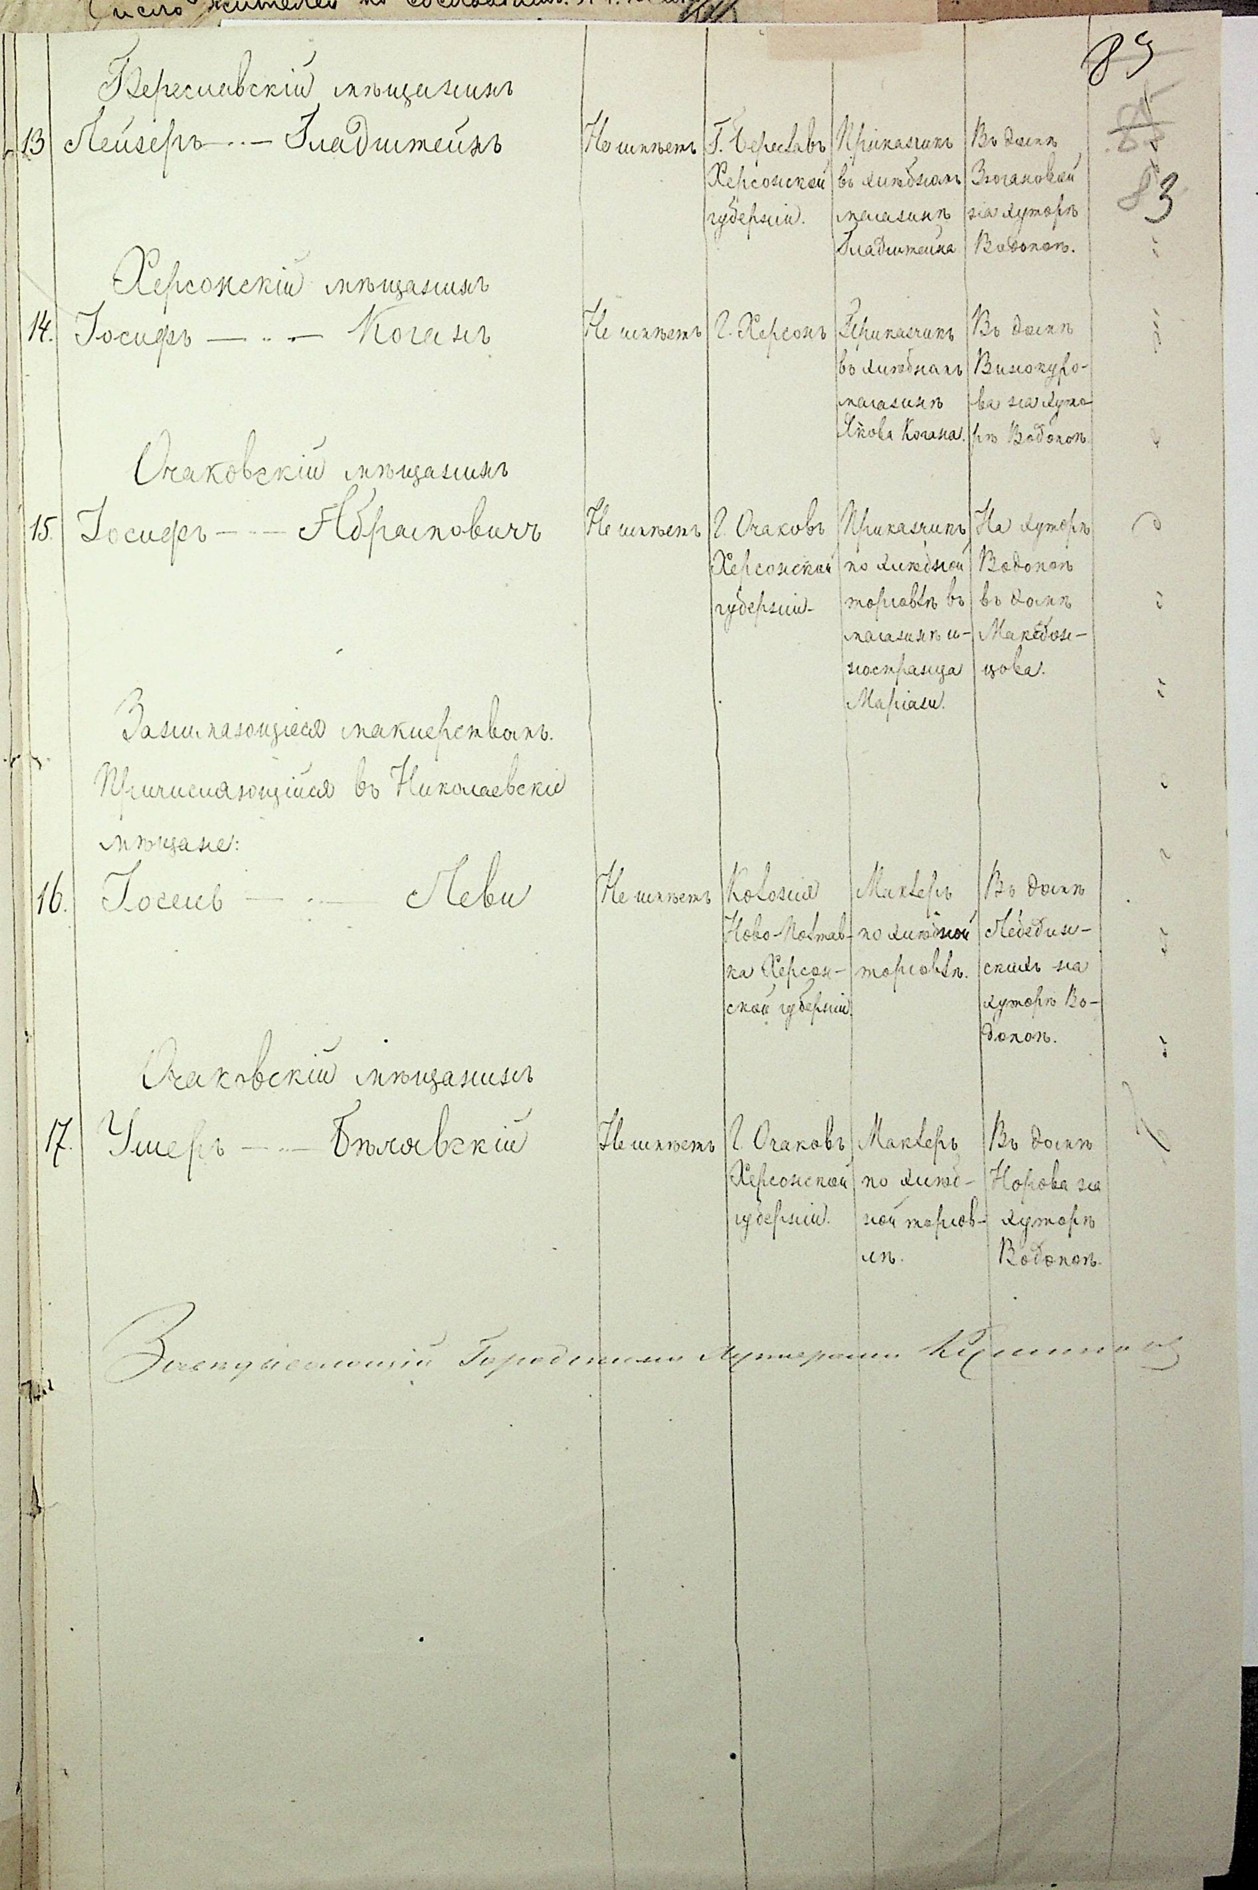 89
84
83
Береславскій мѣщанинъ
13 Лейзеръ — Гладштейнъ
Не имѣетъ
Г. Береславъ
Херсонской
губерніи.
Прикащикъ
въ хлѣбномъ
магазинѣ
Гладштейна
Въ домѣ
на хуторѣ
Водопоѣ.
Херсонскій мѣщанинъ
14. Іосифъ — Коганъ
Не имѣетъ
Г. Херсонъ
Прикащикъ
въ хлѣбномъ
магазинѣ
Якова Когана.
Въ домѣ
Винокуро-
ва на хуто-
рѣ Водопоѣ
Очаковскій мѣщанинъ
15. Іосифъ — Абрамовичъ
Не имѣетъ
Г. Очаковъ
Херсонской
губерніи
Прикащикъ
по хлѣбной
торговлѣ въ
магазинѣ и-
ностранца
Маріани.
На хуторѣ
Водопоѣ
въ домѣ
Македон-
цова.
Занимающіеся маклерствомъ.
Причисляющійся въ Николаевскіе
мѣщане:
16. Іосель — Леви
Не имѣетъ
Колонія
Ново-Полтав-
ка Херсон-
ской губерніи
Маклеръ
по хлѣбной
торговлѣ.
Въ домѣ
Лебедин-
скихъ на
хуторѣ Во-
допоѣ.
Очаковскій мѣщанинъ
17. Ушеръ — Бѣлявскій
Не имѣетъ
Г. Очаковъ
Херсонской
губерніи.
Маклеръ
по хлѣб-
ной торгов-
лѣ.
Въ домѣ
Норова на
хуторѣ
Водопоѣ.
Завѣдывающій Городскими Хуторами